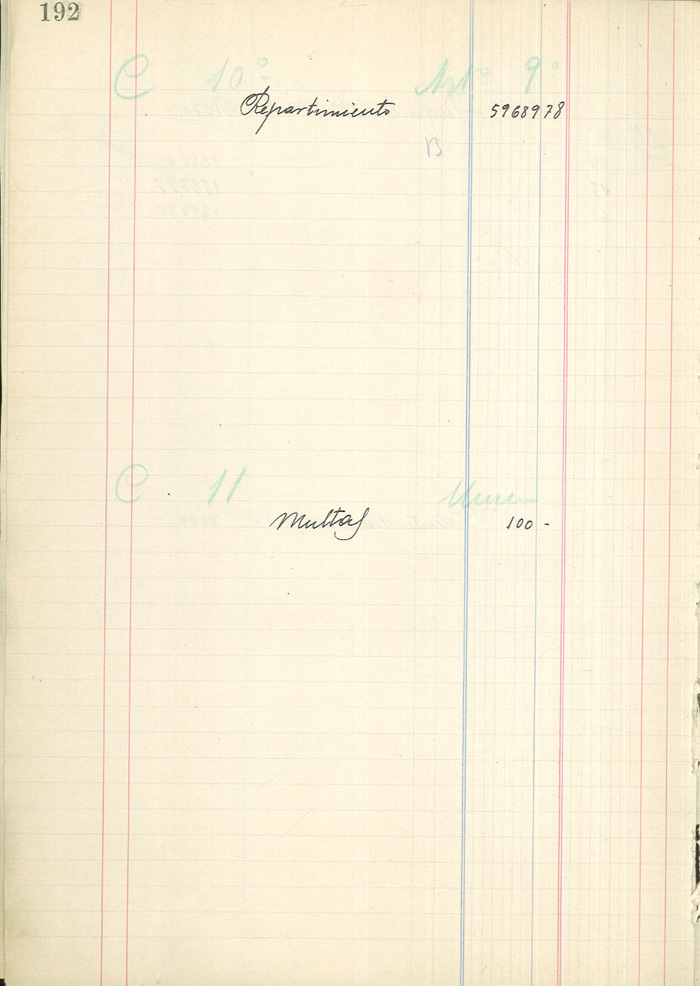 192
C 10º Artº 9º
Repartimiento 5968978
B
C 11
Multas 100 -